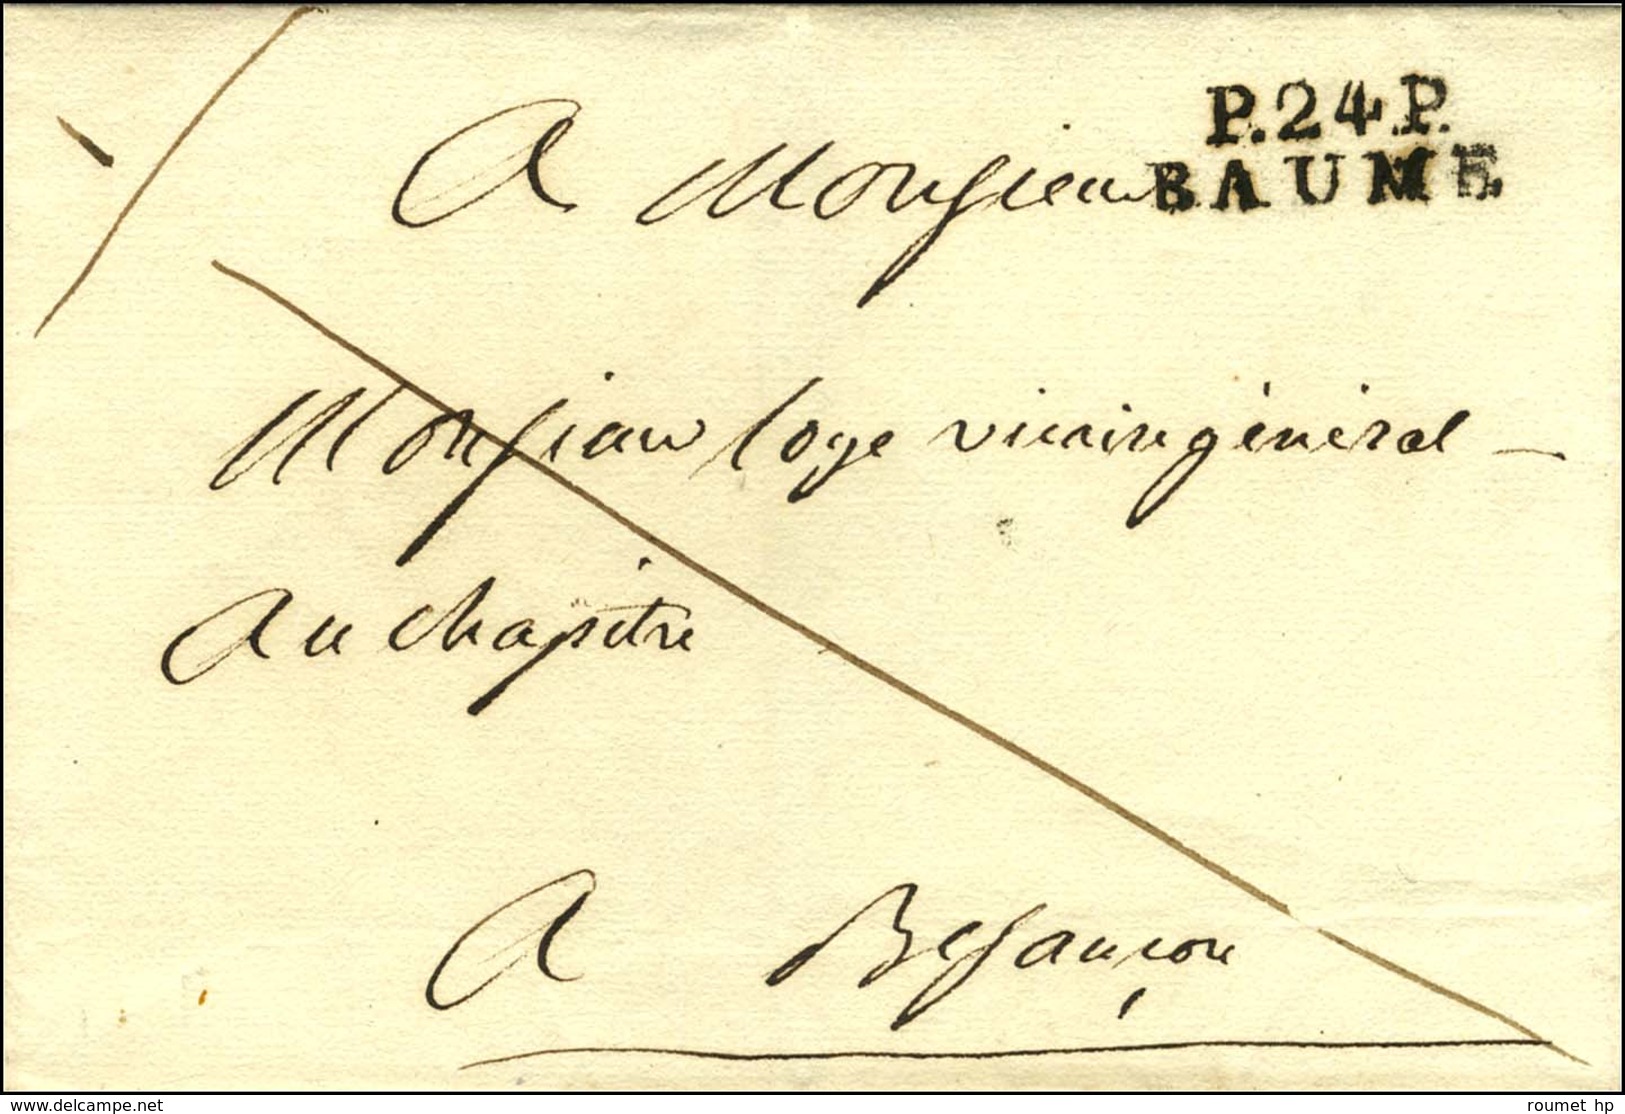 P.24.P.
BAUME
A Monsieur
Monsieur loye vicaire général
Au chapitre
A Besançon
www.delcampe.net
roumet hp